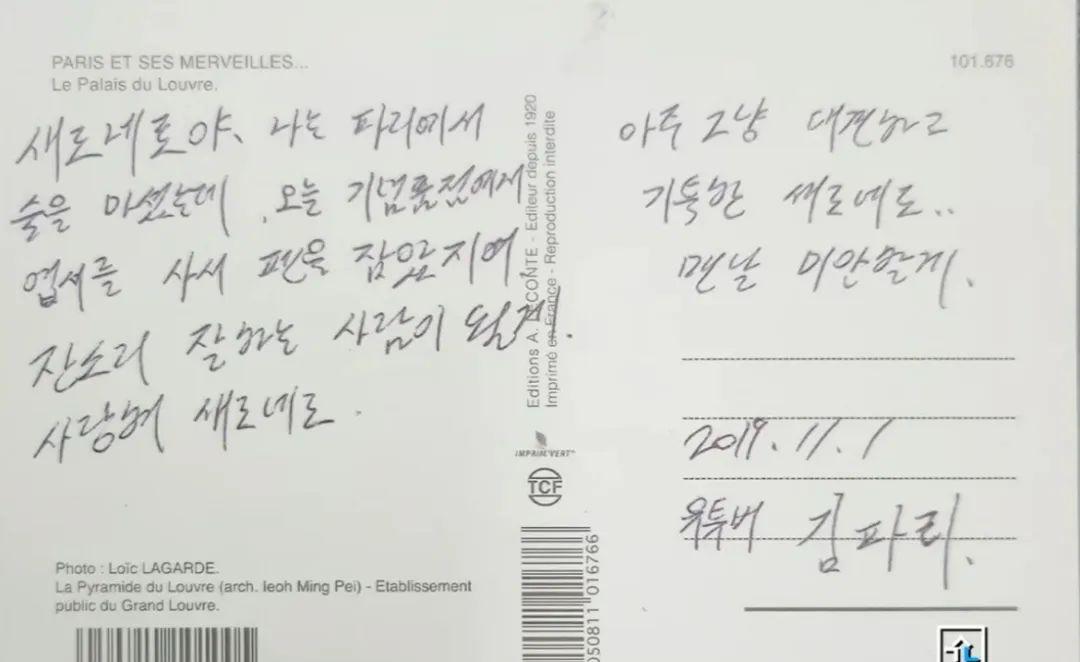 PARIS ET SES MERVEILLES...
Le Palais du Louvre.
101.676
새로네로야, 나는 파리에서
술을 마셨는데, 오늘 기념품점에서
엽서를 사서 펜을 잡았지여.
잔소리 잘하는 사람이 될게.
사랑혀 새로네로.
아주 그냥 대견하고
기특한 새로네로..
맨날 미안할게.
2019.11.1
유투버 김파리.
Editions A. LECONTE - Editeur depuis 1920
Imprimé en France - Reproduction interdite
IMPRIM'VERT®
TCF
Photo : Loïc LAGARDE.
La Pyramide du Louvre (arch. Ieoh Ming Pei) - Etablissement
public du Grand Louvre.
050811 016766